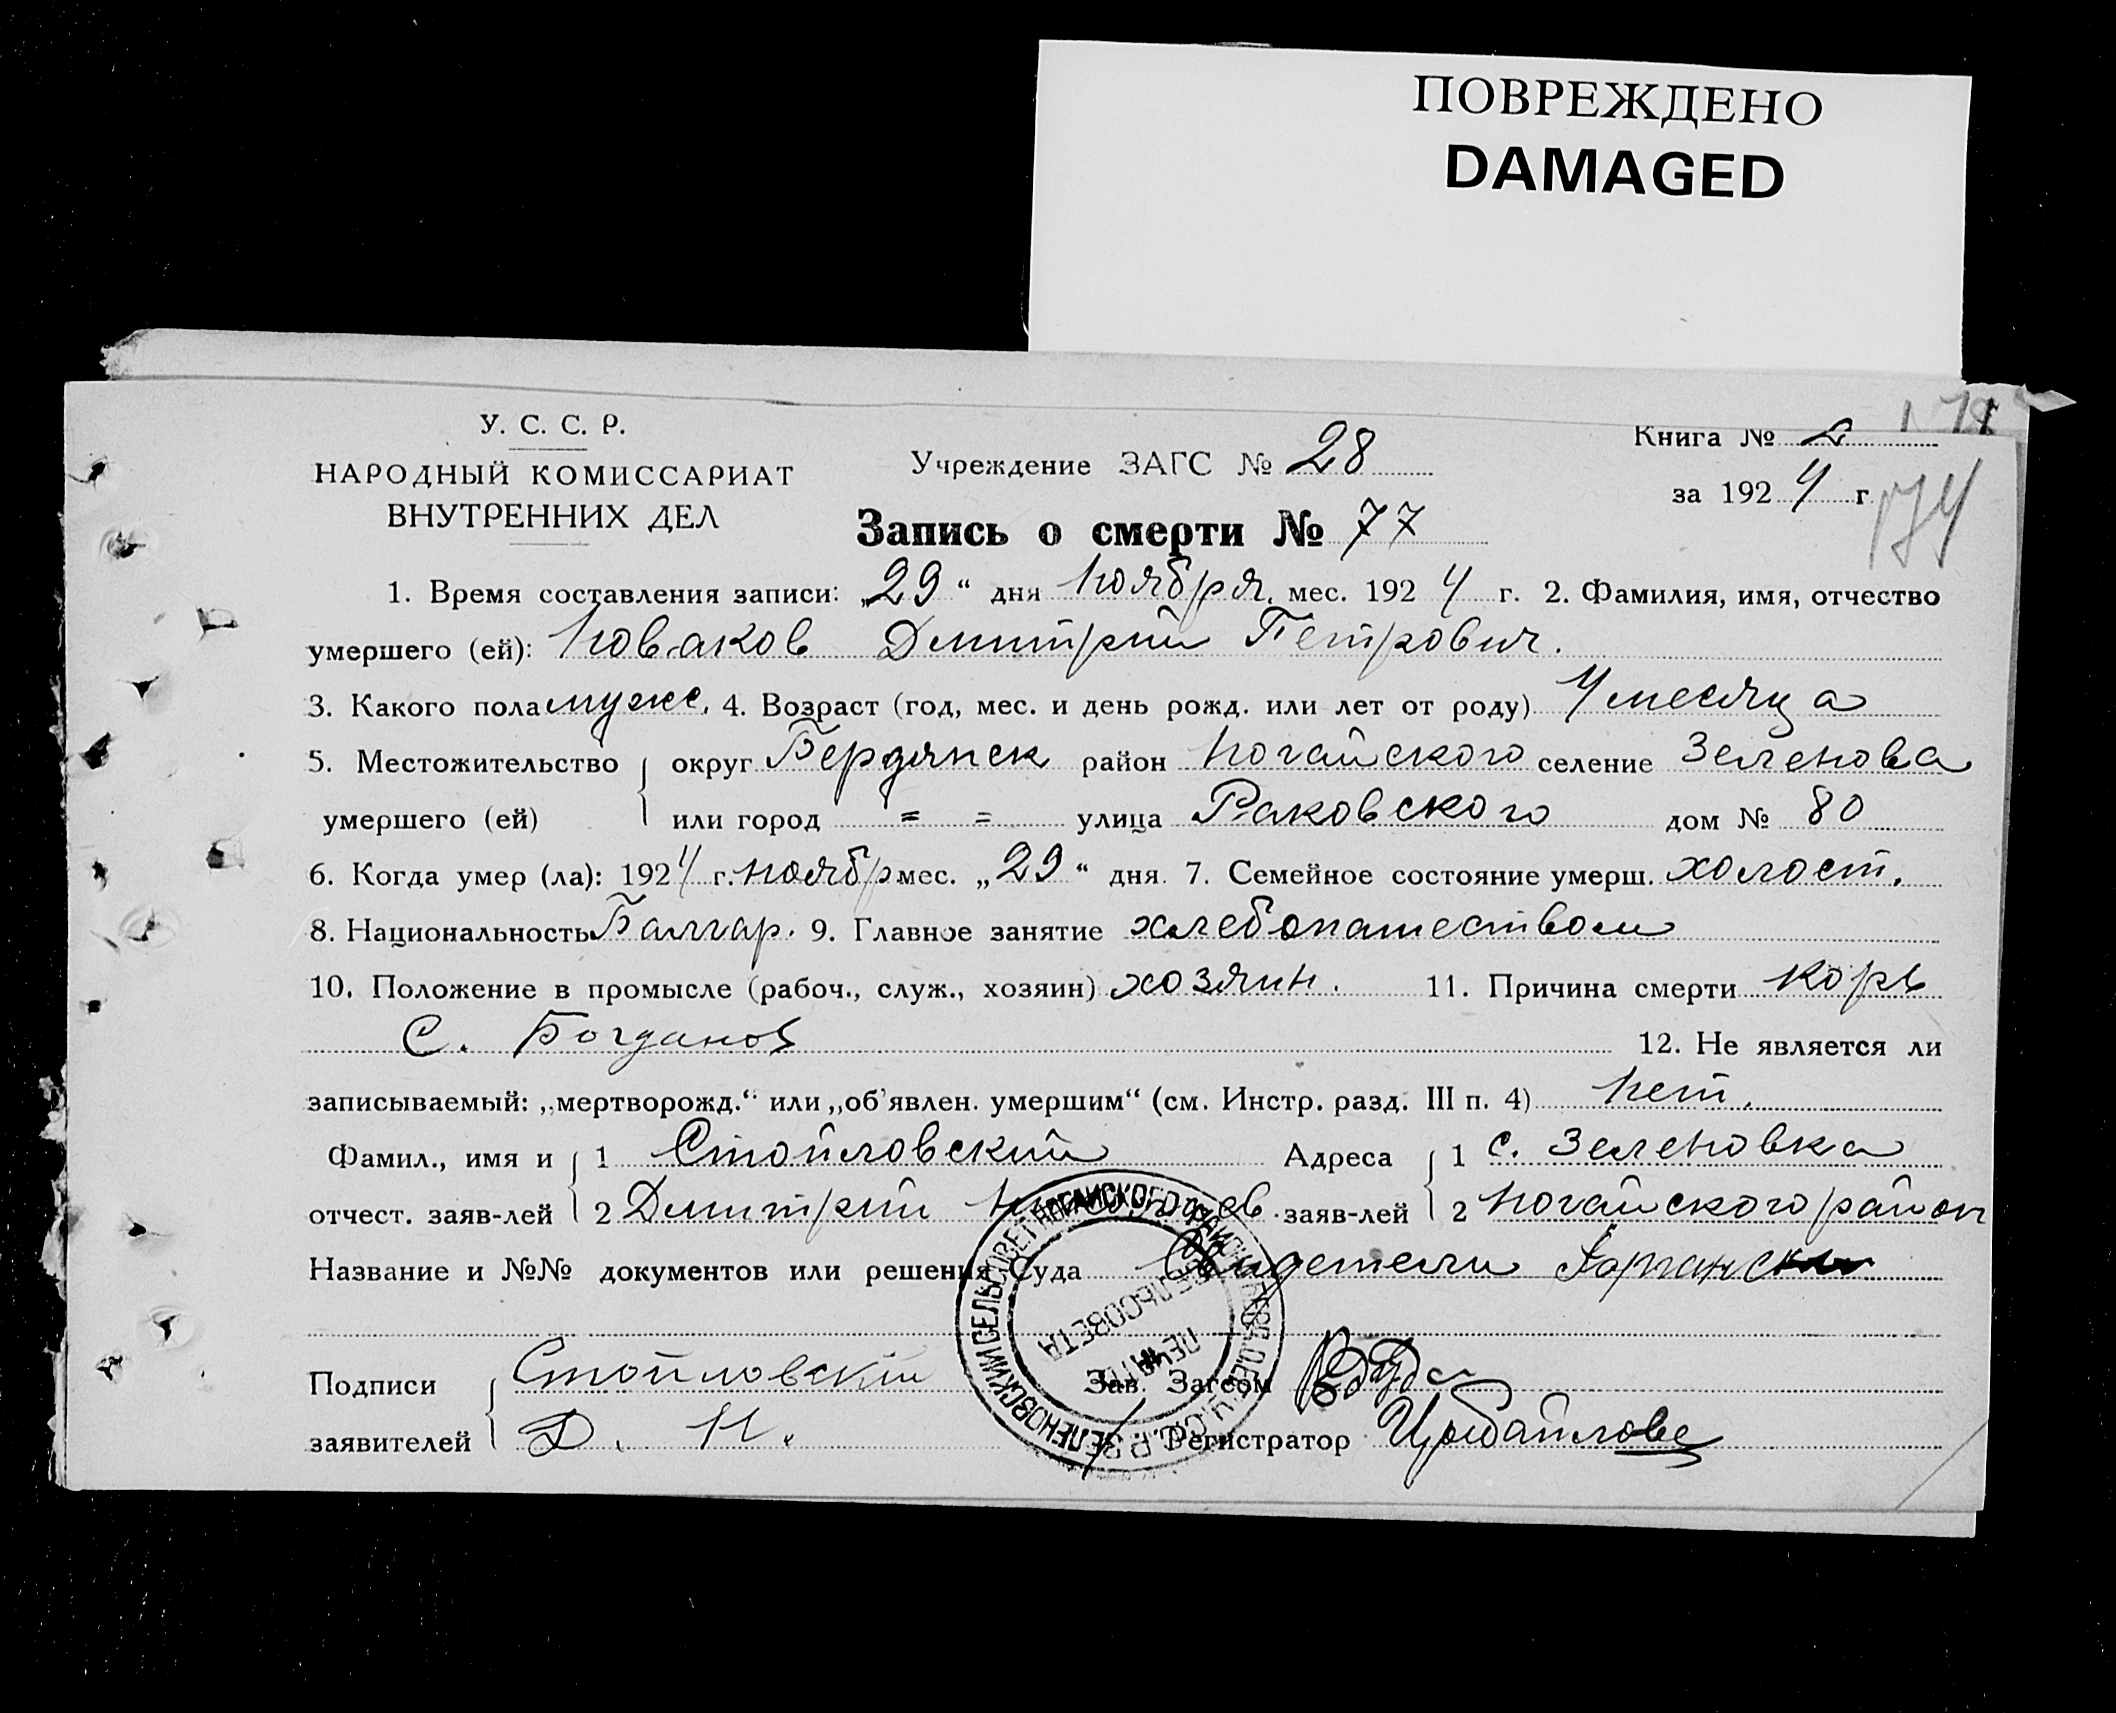 ПОВРЕЖДЕНО
DAMAGED
У. С. С. Р.
НАРОДНЫЙ КОМИССАРИАТ
ВНУТРЕННИХ ДЕЛ
Учреждение ЗАГС № 28
Книга № 2
за 1924 г
174
Запись о смерти № 77
1. Время составления записи: „29“ дня Ноября. мес. 1924 г. 2. Фамилия, имя, отчество
умершего (ей): Новаков Дмитрий Петрович.
3. Какого пола мужс. 4. Возраст (год, мес. и день рожд. или лет от роду) 4 месяца
5. Местожительство округ Бердянск район Ногайского селение Зеленова
умершего (ей) или город = = улица Раковского дом № 80
6. Когда умер (ла): 1924 г. ноябр мес. „29“ дня. 7. Семейное состояние умерш. холост.
8. Национальность Балгар. 9. Главное занятие хлебопашеством
10. Положение в промысле (рабоч., служ., хозяин) хозяин. 11. Причина смерти корь
С. Богданов 12. Не является ли
записываемый: „мертворожд.“ или „об'явлен. умершим“ (см. Инстр. разд. III п. 4) Нет.
Фамил., имя и 1 Стойловский Адреса 1 с. Зеленовка
отчест. заяв-лей 2 Дмитрий заяв-лей 2 Ногайского район
Название и №№ документов или решения Суда Свидетели
Подписи Стойловский Зав. Загсом
заявителей Д. Н. Регистратор
ЗЕЛЕНОВСКИЙ СЕЛЬСОВЕТ НОГАЙСКОГО РАЙОНА
ПЕЧАТЬ
СЕЛЬСОВЕТА